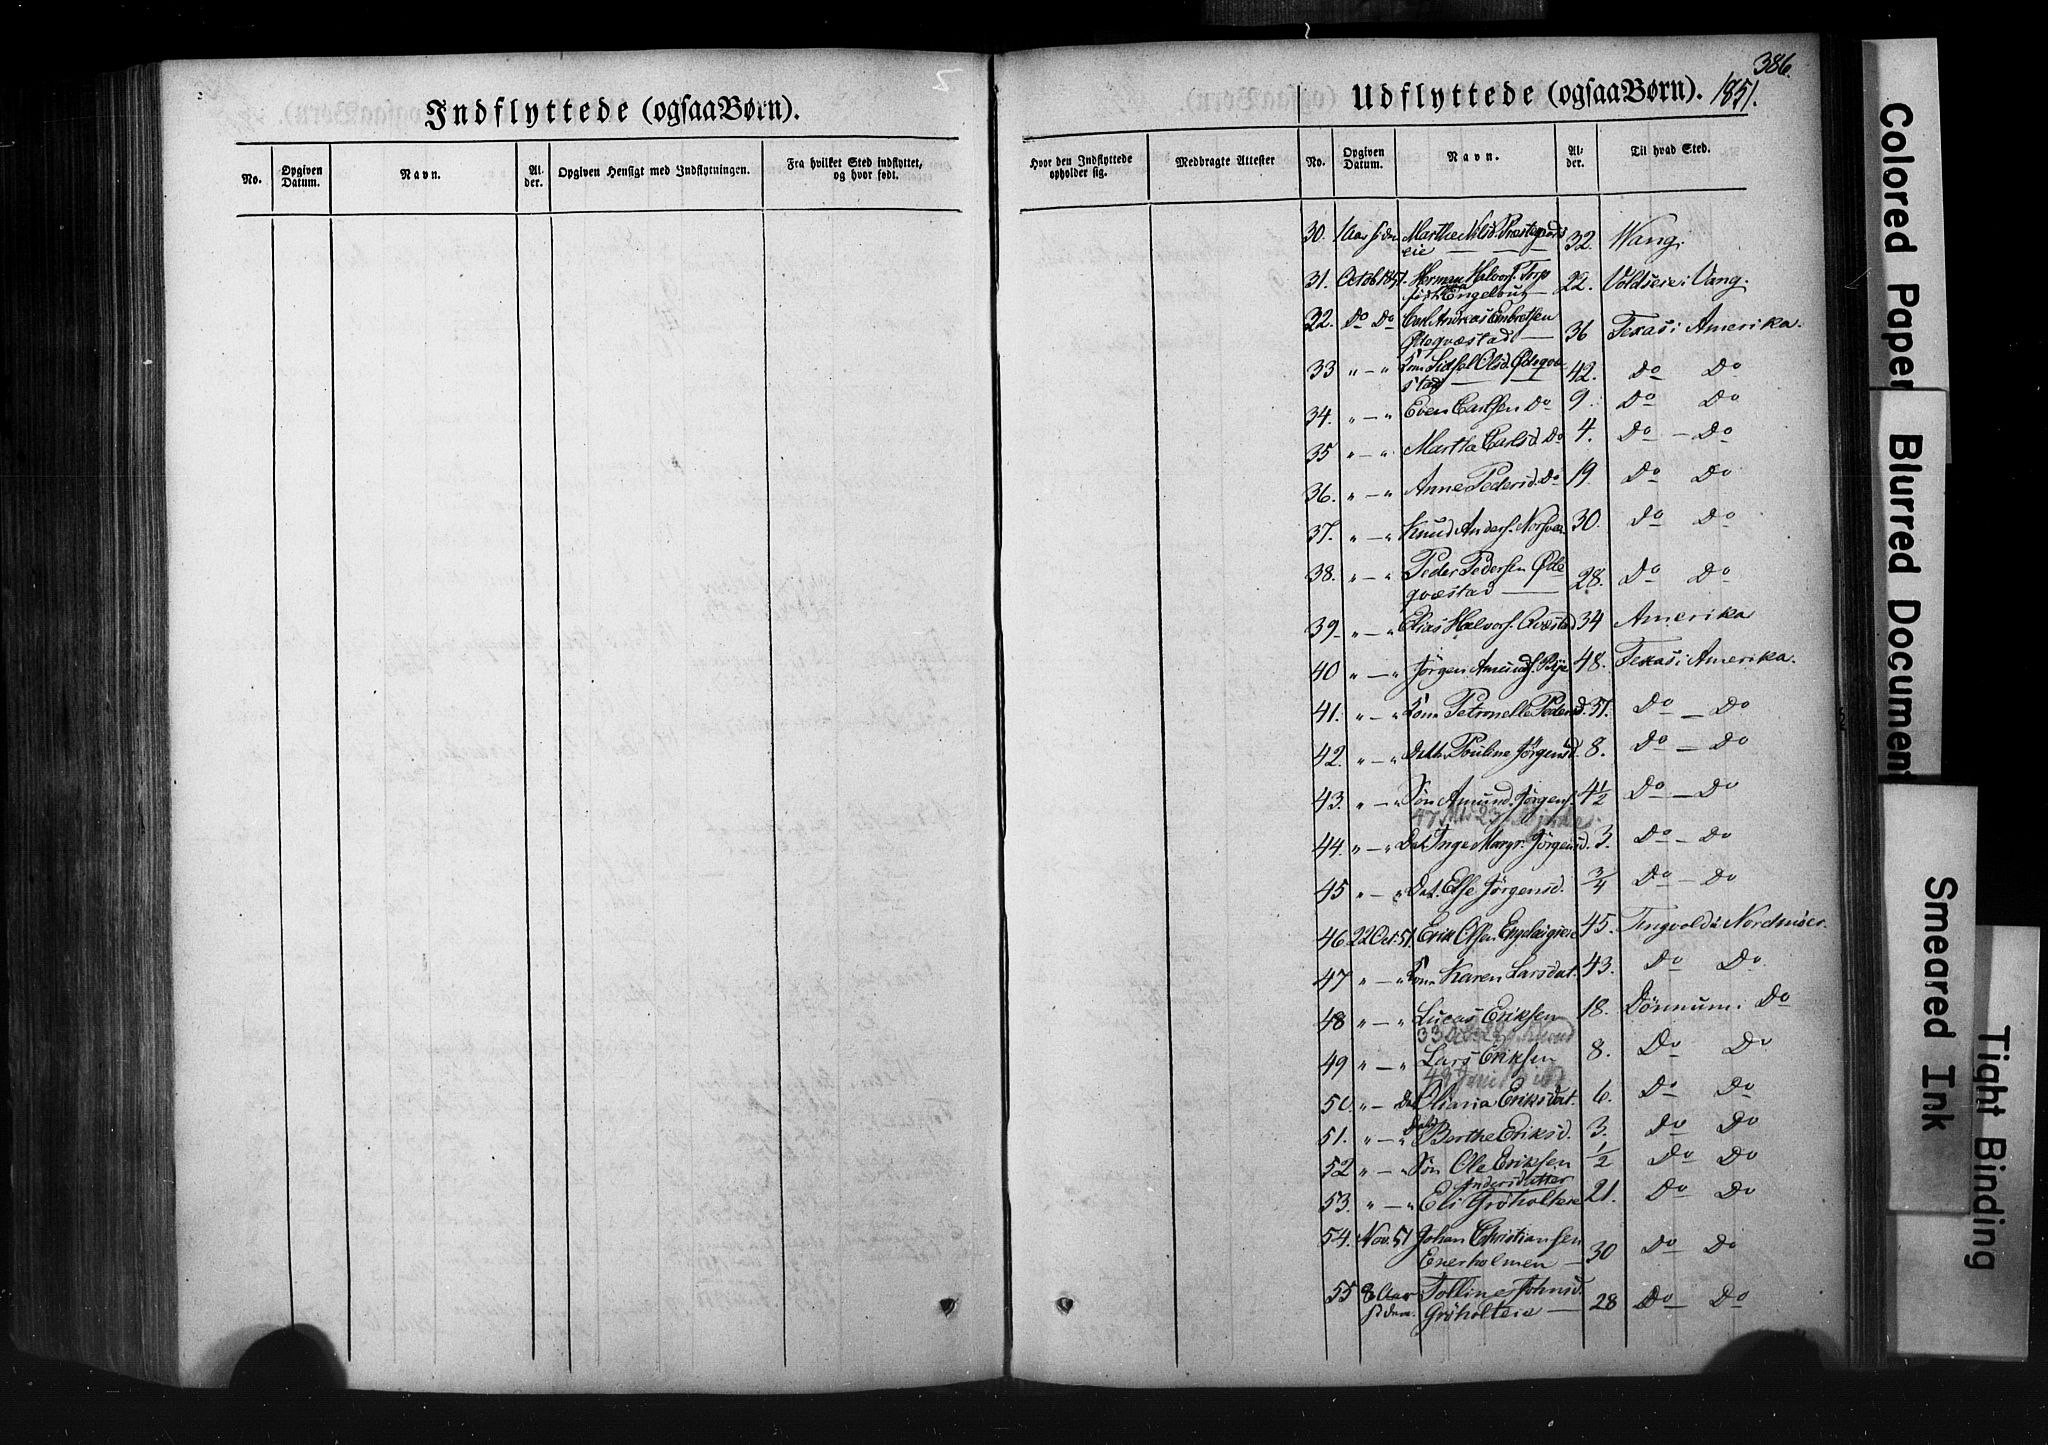 5
386.
Indflyttede (ogsaa Børn).
No.
Opgiven Datum.
Navn.
Al-der.
Opgiven Hensigt med Indflytningen.
Fra hvilket Sted indflyttet, og hvor født.
Udflyttede (ogsaa Børn). 1851.
Hvor den Indflyttede opholder sig.
Medbragte Attester
No.
Opgiven Datum.
Navn.
Al-der.
Til hvad Sted.
30. 1 Aar siden Marthe Nilsd. Præstegaards
eie 32. Wang.
31. Octob 1851. Herman Halvors. Torp
Engelbut 22. Voldseie i Vang.
32. Do Do Carl Andreas Embretsen
Ødeqvæstad 36 Texas i Amerika.
33 " — " Kone Sidsel Olsd. Ødeqvæ
stad 42. Do Do
34. " — " Even Carlsen Do 9. Do Do
35 " — " Martha Carlsd. Do 4. Do — Do
36. " — " Anne Pedersd. Do 19. Do Do
37. " — " Knud Anders. 30. Do Do
38. " — " Peder Pedersen Øde
qvæstad 28. Do Do
39. " — " Elias Halvors. Qvæstad 34 Amerika
40 " — " Jörgen Amunds. 48. Texas i Amerika.
41. " — " Kone Petronelle Pedersd. 37. Do — Do
42. " — " Datt. Pouline Jörgensd. 8. Do — Do
43. " — " Sön Amund Jörgens. 4½ Do — Do
44. " — " Dat. Inge Margr. Jörgensd. 3. Do — Do
45 " — " Dat. Else Jörgensd. 3/4 Do — Do
46. 22 Oct. 51. Erik Olsen 45. Tingvold i Nordmöer.
47 " — " Kone Karen Larsdat. 43. Do Do
48 " — " Lucas Eriksen 18. Dönnum i Do
49 " — " Lars Eriksen 8. Do Do
50. " — Dat Oliana Eriksdat. 6. Do Do
51. " — " Datt Berthe Eriksd. 3. Do Do
52 " — " Sön Ole Eriksen ½ Do Do
Andersdatter
53. " — " Eli Gröholteie 21. Do Do
54. Nov. 51 Johan Christiansen
Enerholmen — 30 Do Do
55 8 Aar Tolline Johnsd.
siden. Gröholteie — 28 Do Do
Colored Paper
Blurred Document
Smeared Ink
Tight Binding